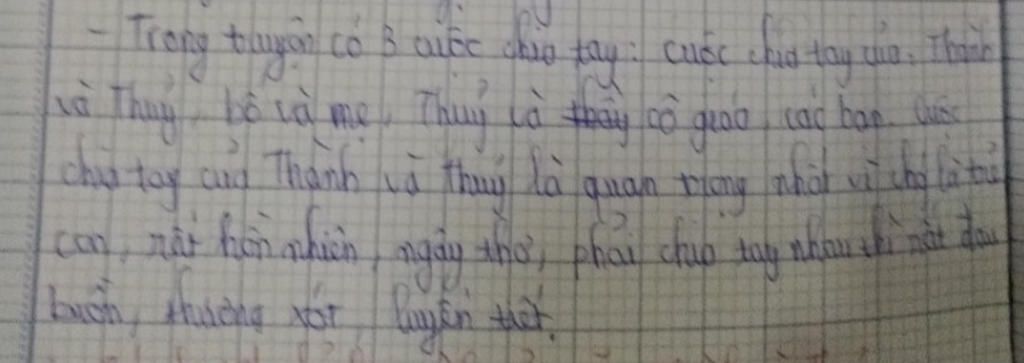 - Trong truyện có 3 cuộc chia tay: cuộc chia tay của: Thành
và Thuỷ, bố và mẹ, Thuỷ và thầy cô giáo, các bạn. Cuộc
chia tay của Thành và Thuỷ là quan trọng nhất vì họ là trẻ
con, rất hồn nhiên, ngây thơ, phải chia tay nhau thì rất đau
buồn, thương xót, luyến tiếc.